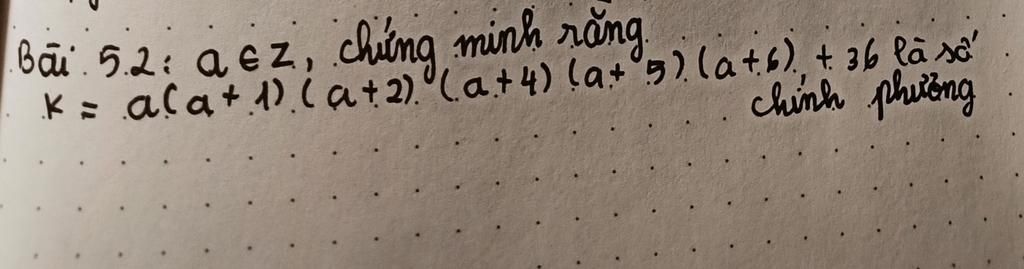 Bài 5.2: a ∈ Z, chứng minh rằng
K = a(a+1)(a+2)(a+4)(a+5)(a+6) + 36 là số
chính phương